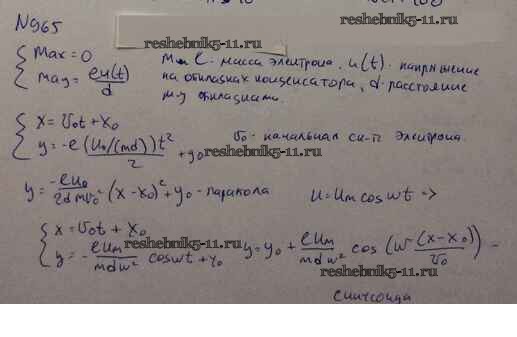 N965
reshebnik5-11.ru
max = 0
may = eu(t)/d
m - масса электрона, u(t) - напряжение
на обкладках конденсатора, d - расстояние
м/у обкладками.
x = v₀t + x₀
y = -e(u₀/(md))t²/2 + y₀
reshebnik5-11.ru
v₀ - начальная ск-ть электрона.
y = -eu₀/2dmv₀² (x - x₀)² + y₀ - парабола
u = uₘ cos wt →
reshebnik5-11.ru
x = v₀t + x₀
y = -euₘ/mdw² cos wt + y₀
reshebnik5-11.ru
y = y₀ + euₘ/mdw² cos (w (x - x₀)/v₀) -
reshebnik5-11.ru
синусоида